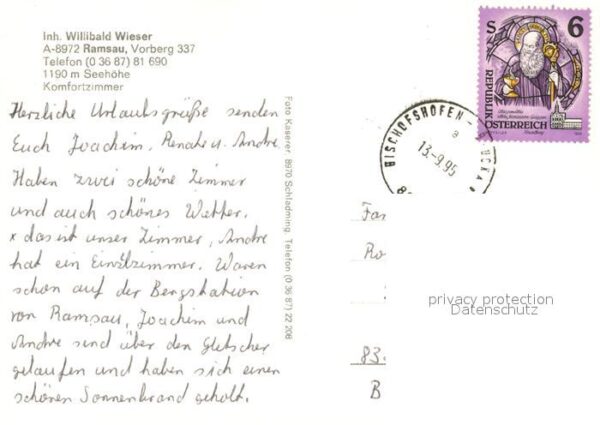 Inh. Willibald Wieser
A-8972 Ramsau, Vorberg 337
Telefon (0 36 87) 81 690
1190 m Seehöhe
Komfortzimmer
Herzliche Urlaubsgrüße senden
Euch Joachim, Renate u. Andre
Haben zwei schöne Zimmer
und auch schönes Wetter.
x das ist unser Zimmer, Andre
hat ein Einzelzimmer. Waren
schon auf der Bergstation
von Ramsau, Joachim und
Andre sind über den Gletscher
gelaufen und haben sich einen
schönen Sonnenbrand geholt.
Foto Kaserer 8970 Schladming, Telefon (0 36 87) 22 206
BISCHOFSHOFEN -
a
13.-9.95
S 6
REPUBLIK
ÖSTERREICH
Fa
Ro
privacy protection
Datenschutz
83
B